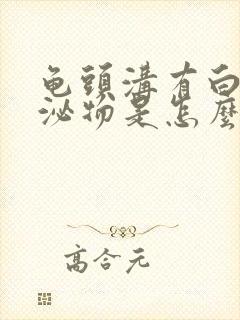 龟頭溝有白
泌物是怎麼
高合元